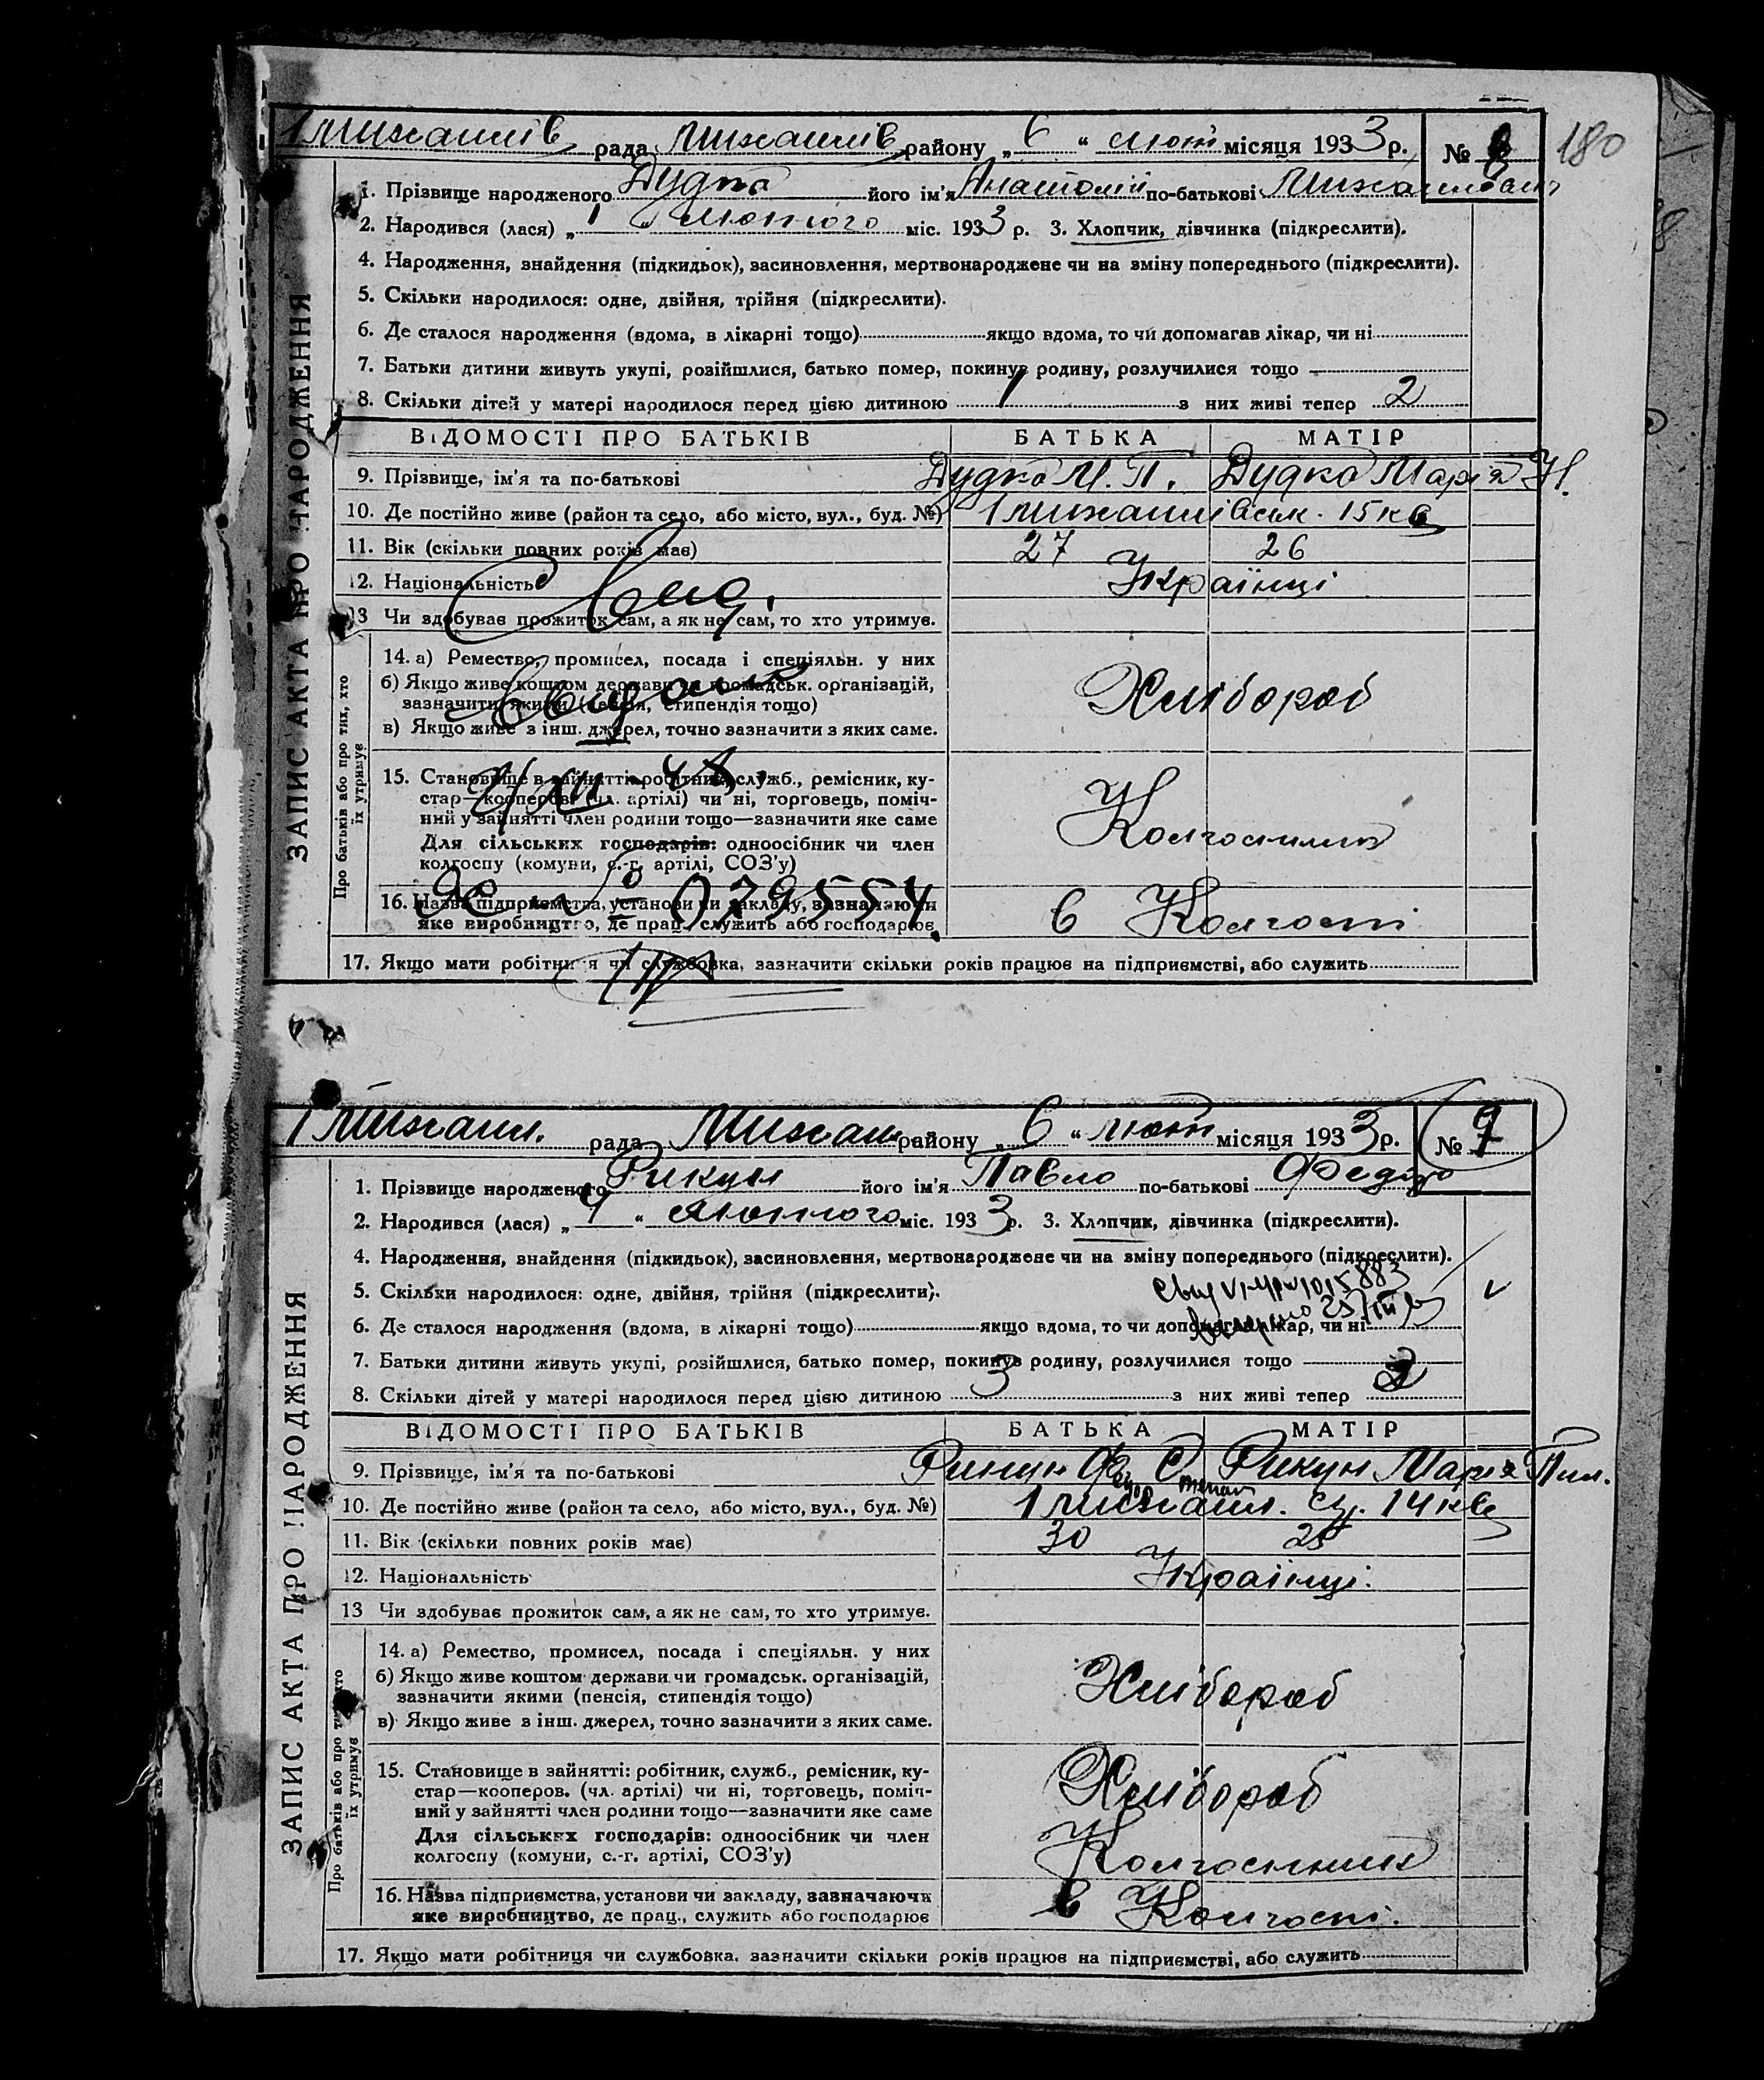 1 Михайлів рада Михайлів району „ 6 “ лют місяця 1933 р. №
180
1. Прізвище народженого Дудка його ім'я Анатолій по-батькові Михайлович
2. Народився (лася) „ 1 “ лютого міс. 1933 р. 3. Хлопчик, дівчинка (підкреслити).
4. Народження, знайдення (підкидьок), засиновлення, мертвонароджене чи на зміну попереднього (підкреслити).
5. Скільки народилося: одне, двійня, трійня (підкреслити).
6. Де сталося народження (вдома, в лікарні тощо) якщо вдома, то чи допомагав лікар, чи ні
7. Батьки дитини живуть укупі, розійшлися, батько помер, покинув родину, розлучилися тощо
8. Скільки дітей у матері народилося перед цією дитиною 1 з них живі тепер 2
ЗАПИС АКТА ПРО НАРОДЖЕННЯ
ВІДОМОСТІ ПРО БАТЬКІВ БАТЬКА МАТІР
9. Прізвище, ім'я та по-батькові Дудка М. П. Дудка Марія Н.
10. Де постійно живе (район та село, або місто, вул., буд. №) 1 Михайлівськ. 15 кв
11. Вік (скільки повних років має) 27 26
12. Національність Українці
13 Чи здобуває прожиток сам, а як не сам, то хто утримує.
Про батьків або про тих, хто їх утримує
14. а) Ремество, промисел, посада і спеціяльн. у них
б) Якщо живе коштом держави чи громадськ. організацій,
зазначити якими (пенсія, стипендія тощо)
Хлібороб
в) Якщо живе з інш. джерел, точно зазначити з яких саме.
15. Становище в зайнятті: робітник, служб., ремісник, ку-
стар—кооперов. (чл. артілі) чи ні, торговець, поміч-
ний у зайнятті член родини тощо—зазначити яке саме
Для сільських господарів: одноосібник чи член
Колгоспник
колгоспу (комуни, с.-г. артілі, СОЗ'у)
№ 079554
16. Назва підприємства, установи чи закладу, зазначаючи
яке виробництво, де прац., служить або господарює
в Колгоспі
17. Якщо мати робітниця чи службовка, зазначити скільки років працює на підприємстві, або служить
1 Михайл. рада Михайл району „ 6 “ лют місяця 1933 р. № 9
1. Прізвище народженого Рикун його ім'я Павло по-батькові Федор
2. Народився (лася) „ 4 “ лютого міс. 1933 р. 3. Хлопчик, дівчинка (підкреслити).
4. Народження, знайдення (підкидьок), засиновлення, мертвонароджене чи на зміну попереднього (підкреслити).
5. Скільки народилося: одне, двійня, трійня (підкреслити).
6. Де сталося народження (вдома, в лікарні тощо) якщо вдома, то чи допомагав лікар, чи ні
7. Батьки дитини живуть укупі, розійшлися, батько помер, покинув родину, розлучилися тощо
8. Скільки дітей у матері народилося перед цією дитиною 3 з них живі тепер
ЗАПИС АКТА ПРО НАРОДЖЕННЯ
ВІДОМОСТІ ПРО БАТЬКІВ БАТЬКА МАТІР
9. Прізвище, ім'я та по-батькові Рикун Рикун Марія Пил.
10. Де постійно живе (район та село, або місто, вул., буд. №) 1 Михайл. 14 кв
11. Вік (скільки повних років має) 30
12. Національність Українці.
13 Чи здобуває прожиток сам, а як не сам, то хто утримує.
Про батьків або про тих, хто їх утримує
14. а) Ремество, промисел, посада і спеціяльн. у них
б) Якщо живе коштом держави чи громадськ. організацій,
зазначити якими (пенсія, стипендія тощо)
Хлібороб
в) Якщо живе з інш. джерел, точно зазначити з яких саме.
15. Становище в зайнятті: робітник, служб., ремісник, ку-
стар—кооперов. (чл. артілі) чи ні, торговець, поміч-
Хлібороб
ний у зайнятті член родини тощо—зазначити яке саме
Для сільських господарів: одноосібник чи член
колгоспу (комуни, с.-г. артілі, СОЗ'у)
Колгоспник
16. Назва підприємства, установи чи закладу, зазначаючи
яке виробництво, де прац., служить або господарює
в Колгоспі.
17. Якщо мати робітниця чи службовка, зазначити скільки років працює на підприємстві, або служить